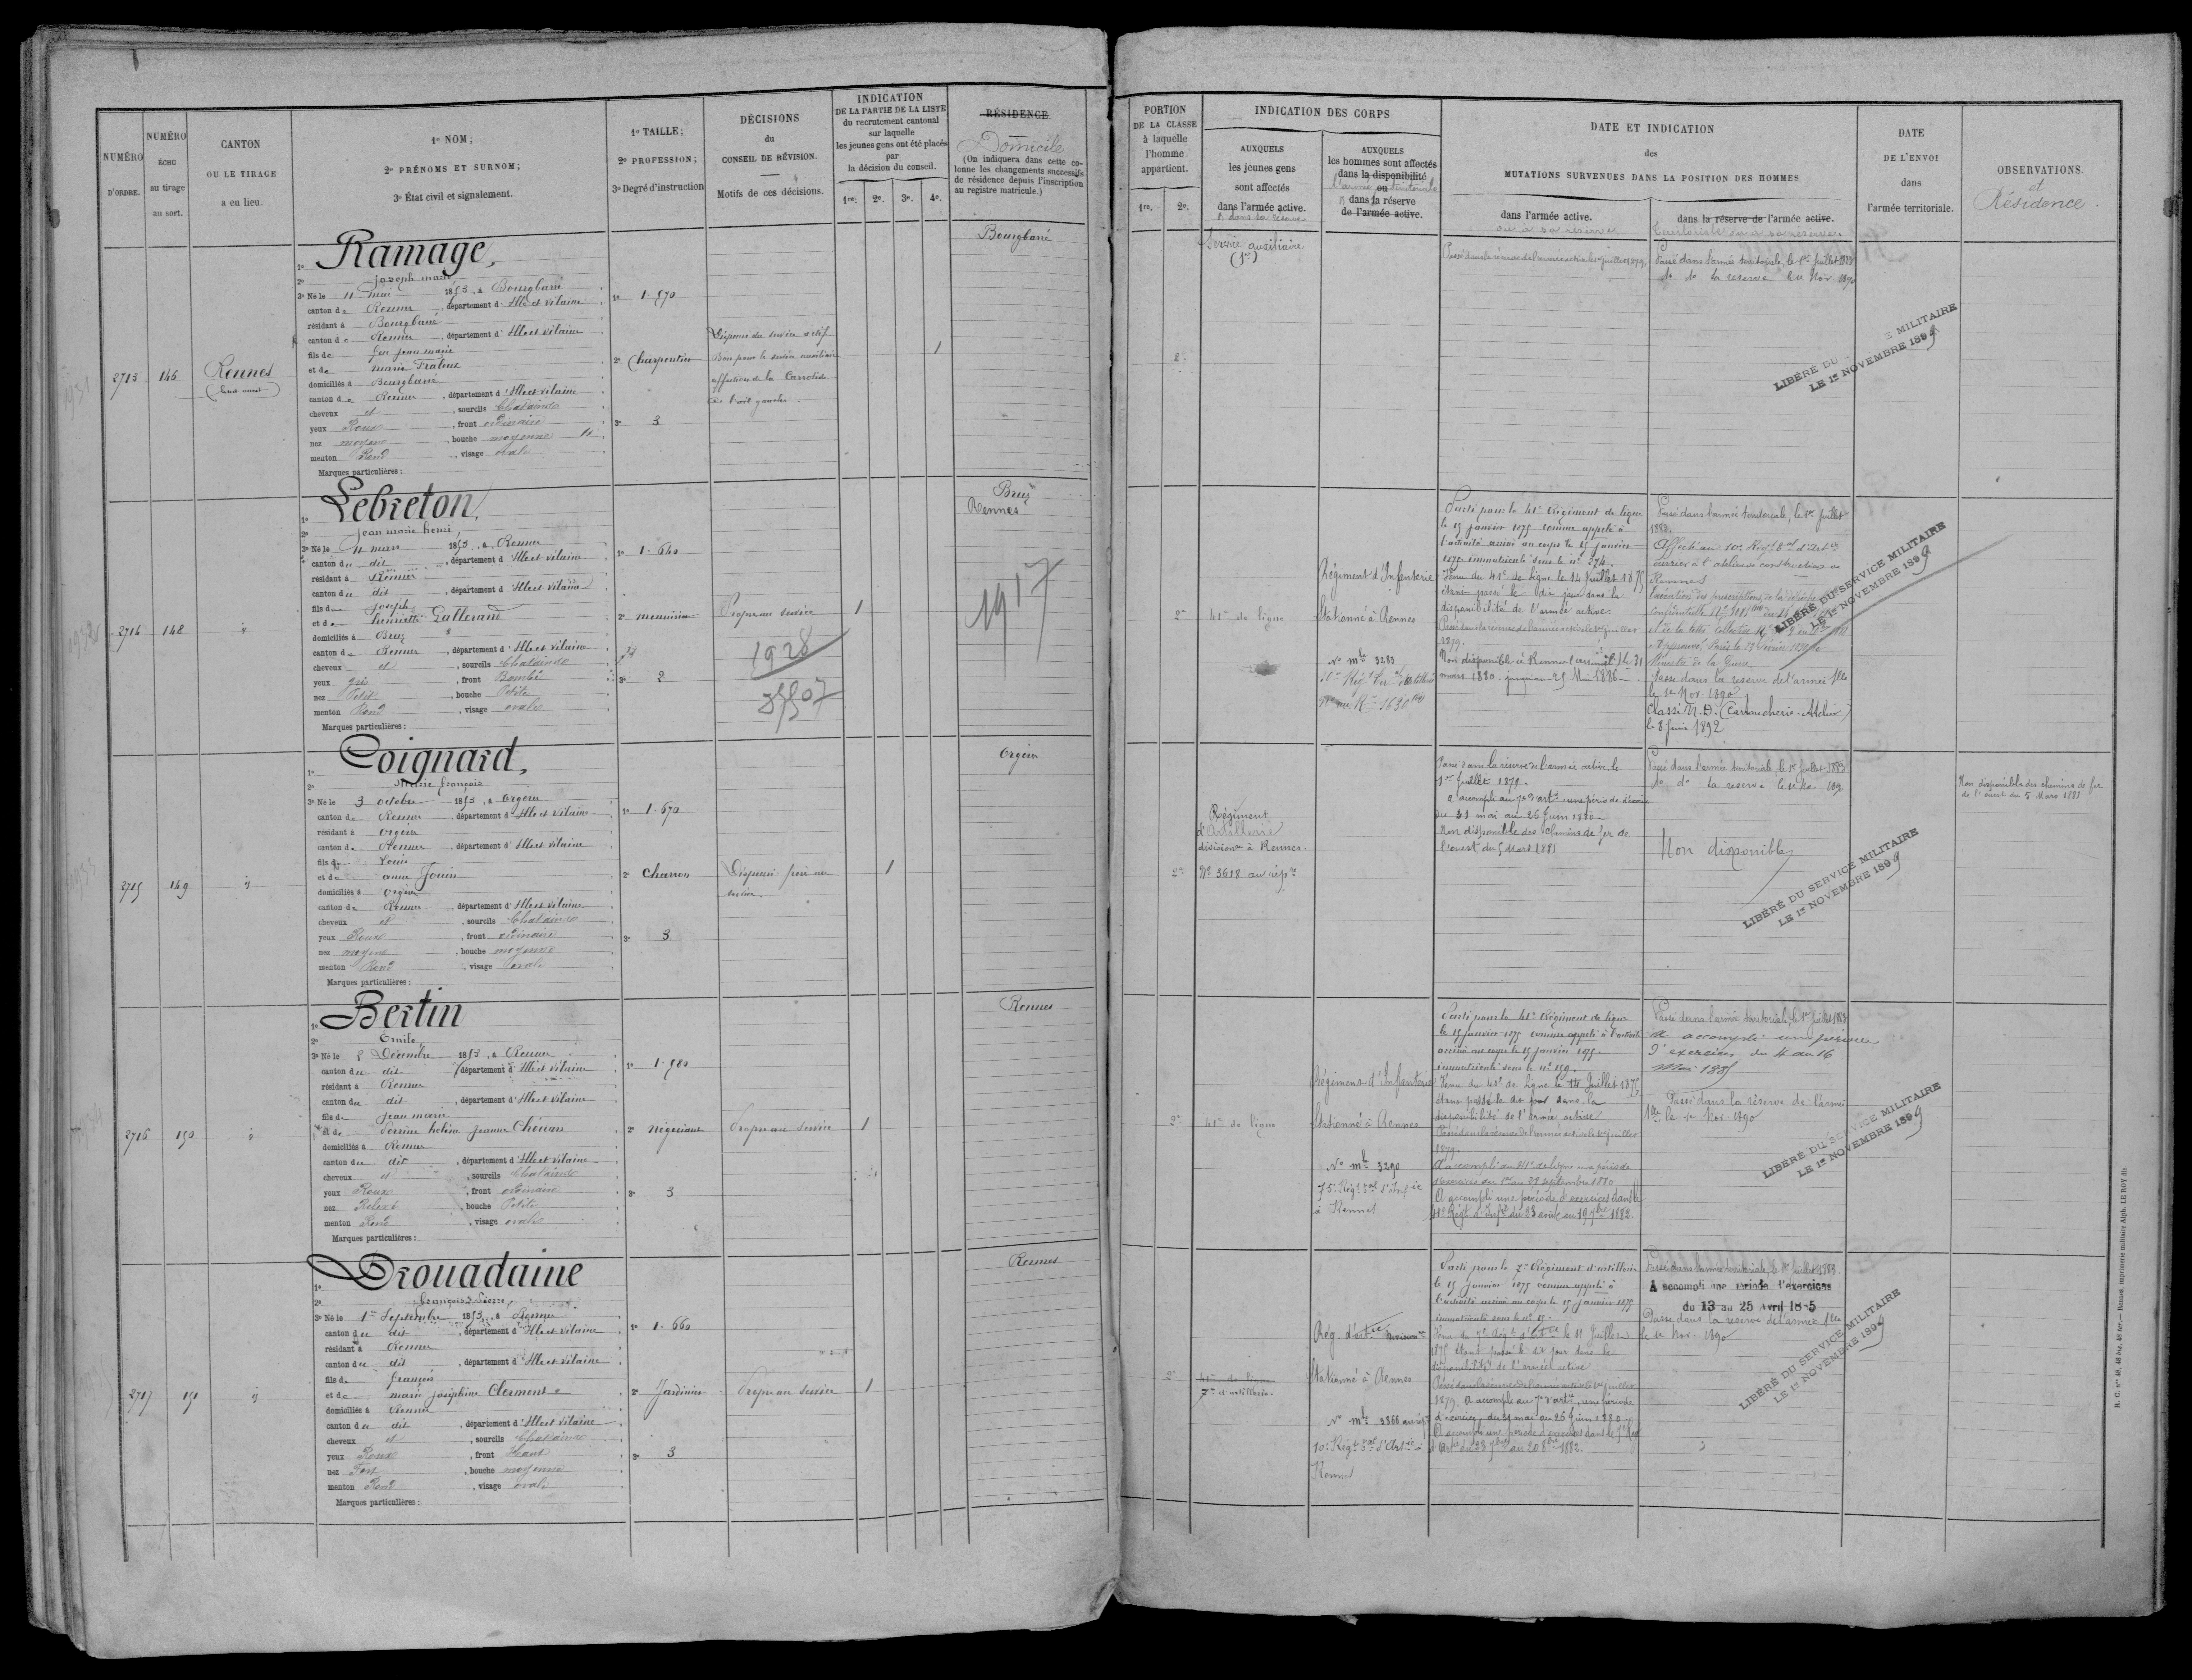 NUMÉRO
D'ORDRE.
NUMÉRO
ÉCHU
au tirage
au sort.
CANTON
OU LE TIRAGE
a eu lieu.
1º NOM;
2º PRÉNOMS ET SURNOM;
3º État civil et signalement.
1º TAILLE;
2º PROFESSION;
3º Degré d'instruction
DÉCISIONS
du
CONSEIL DE RÉVISION.
Motifs de ces décisions.
INDICATION
DE LA PARTIE DE LA LISTE
du recrutement cantonal
sur laquelle
les jeunes gens ont été placés
par
la décision du conseil.
1re. 2e. 3e. 4e.
RÉSIDENCE
Domicile
(On indiquera dans cette co-
lonne les changements successifs
de résidence depuis l'inscription
au registre matricule.)
PORTION
DE LA CLASSE
à laquelle
l'homme
appartient.
1re. 2e.
INDICATION DES CORPS
AUXQUELS
les jeunes gens
sont affectés
dans l'armée active.
& dans sa réserve
AUXQUELS
les hommes sont affectés
dans la disponibilité
ou
l'armée territoriale
& dans la réserve
de l'armée active.
DATE ET INDICATION
des
MUTATIONS SURVENUES DANS LA POSITION DES HOMMES
dans l'armée active.
ou à sa réserve
dans la réserve de l'armée active.
territoriale ou à sa réserve.
DATE
DE L'ENVOI
dans
l'armée territoriale.
OBSERVATIONS.
et
Résidence.
2713 146 Rennes
Ramage,
Joseph marie
3º Né le 11 mai 1853, à Bourgbarré
canton de Rennes, département d'Ille et Vilaine
résidant à Bourgbarré
canton de Rennes, département d'Ille et Vilaine
fils de feu jean marie
et de marie
domiciliés à Bourgbarré
canton de Rennes, département d'Ille et Vilaine
cheveux et, sourcils Chatains
yeux Roux, front ordinaire
nez moyen, bouche moyenne
menton Rond, visage ovale
Marques particulières:
1º 1.570
2º Charpentier
3º 3
Dispensé du service actif
Bon pour le service auxiliaire
de l'œil gauche.
1
Bourgbarré
2e
Service auxiliaire
Passé dans la réserve de l'armée active le 1er juillet 1879.
Passé dans l'armée territoriale, le 1er Juillet 1883
do do la reserve du Nov 1890
LE 1er NOVEMBRE 1899
2714 148 "
Lebreton,
jean marie henri,
3º Né le 11 mars 1853, à Rennes
canton du dit, département d'Ille et Vilaine
résidant à Rennes
canton du dit, département d'Ille et Vilaine
fils de Joseph
et de henriette Lallerand
domiciliés à Bruz
canton de Rennes, département d'Ille et Vilaine
cheveux et, sourcils Chatains
yeux gris, front Bombé
nez Petit, bouche Petite
menton Rond, visage ovale
Marques particulières:
1º 1.640
2º menuisier
3º 2
Propre au service
1928
1
Bruz
Rennes
1917
2e
41e de ligne
Régiment d'Infanterie
Stationné à Rennes
No mle 3283
Parti pour le 41e Régiment de ligne
le 15 janvier 1875 comme appelé à
l'activité arrivé au corps le 15 janvier
1875 immatriculé sous le no 276.
Venu du 41e de ligne le 14 Juillet 1875
étant passé le dit jour dans la
disponibilité de l'armée active.
Passé dans la réserve de l'armée active le 1er juillet
1879.
mars 1880 jusqu'au 25 Mai 1886
Passé dans l'armée territoriale, le 1er Juillet
1883.
ouvrier à l'atelier de construction de
Rennes
Ministre de la Guerre
Passé dans la reserve de l'armée Tlle
le 1er Nov. 1890
Classé N.D. (Cartoucherie - Atelier)
le 8 Juin 1892
LIBÉRÉ DU SERVICE MILITAIRE
LE 1er NOVEMBRE 1899
2715 149 "
Coignard,
Marie françois
3º Né le 3 octobre 1853, à Orgères
canton de Rennes, département d'Ille et Vilaine
résidant à Orgères
canton de Rennes, département d'Ille et Vilaine
fils de Louis
et de anne Jouin
domiciliés à Orgères
canton de Rennes, département d'Ille et Vilaine
cheveux et, sourcils Chatains
yeux Roux, front ordinaire
nez moyen, bouche moyenne
menton Rond, visage ovale
Marques particulières:
1º 1.670
2º Charron
3º 3
Dispensé frère au
service.
1
Orgères
2e
Régiment
d'Artillerie
divisionre à Rennes.
No 3618 au rép.re
Passé dans la réserve de l'armée active le
1er Juillet 1879.
a accompli au 7e d'artie une période d'exercice
du 31 mai au 26 Juin 1880
Non disponible des Chemins de fer de
l'ouest du 5 Mars 1881
Passé dans l'armée territoriale, le 1er Juillet 1883
do do la reserve le 1er No. 1890
Non disponible
LIBÉRÉ DU SERVICE MILITAIRE
LE 1er NOVEMBRE 1899
Non disponible des chemins de fer
de l'ouest du 5 Mars 1881
2716 150 "
Bertin
Emile,
3º Né le 8 Décembre 1853, à Rennes
canton du dit, département d'Ille et Vilaine
résidant à Rennes
canton du dit, département d'Ille et Vilaine
fils de jean marie
et de Perrine helène jeanne Chouan
domiciliés à Rennes
canton du dit, département d'Ille et Vilaine
cheveux et, sourcils Chatains
yeux Roux, front ordinaire
nez Relevé, bouche Petite
menton Rond, visage ovale
Marques particulières:
1º 1.580
2º négociant
3º 3
Propre au service
1
Rennes
2e
41e de ligne
Régiment d'Infanterie
Stationné à Rennes
No mle 3290
75e Régt tal d'Infie
à Rennes
Parti pour le 41e Régiment de ligne
le 15 janvier 1875 comme appelé à l'activité
arrivé au corps le 15 janvier 1875.
immatriculé sous le no 159.
Venu du 41e de ligne le 14 Juillet 1875
étant passé le dit jour dans la
disponibilité de l'armée active
Passé dans la réserve de l'armée active le 1er juillet
1879.
A accompli au 41e de ligne une période
d'exercices du 1er au 28 septembre 1880
A accompli une période d'exercices dans le
41e Régt d'Infie du 23 août au 19 7bre 1882.
Passé dans l'armée territoriale, le 1er Juillet 1883
a accompli une période
d'exercices du 4 au 16
Mai 1885
Passé dans la réserve de l'armée
Tlle le 1er Nov. 1890
LIBÉRÉ DU SERVICE MILITAIRE
LE 1er NOVEMBRE 1899
2717 151 "
Drouadaine
françois Pierre,
3º Né le 1er Septembre 1853, à Rennes
canton du dit, département d'Ille et Vilaine
résidant à Rennes
canton du dit, département d'Ille et Vilaine
fils de françois
et de marie joséphine Clermont
domiciliés à Rennes
canton du dit, département d'Ille et Vilaine
cheveux et, sourcils Chatains
yeux Roux, front Haut
nez Fort, bouche moyenne
menton Rond, visage ovale
Marques particulières:
1º 1.660
2º Jardinier
3º 3
Propre au service
1
Rennes
2e
41e de ligne
7e d'artillerie.
Rég. d'artie divisionre
Stationné à Rennes
No mle 3866 au rép.
10e Régt tal d'Artie à
Rennes
Parti pour le 7e Régiment d'artillerie
le 15 janvier 1875 comme appelé à
l'activité arrivé au corps le 15 janvier 1875
Venu du 7e Régt d'artie le 11 Juillet
1875 étant passé le dit jour dans la
disponibilité de l'armée active
Passé dans la réserve de l'armée active le 1er juillet
1879. A accompli au 7e d'artie, une période
d'exercices du 31 mai au 26 Juin 1880
A accompli une période d'exercices dans le 7e Régt
d'artie du 23 7bre au 20 8bre 1882.
Passé dans l'armée territoriale, le 1er Juillet 1883.
A accompli une période d'exercices
du 13 au 25 Avril 1885
Passé dans la reserve de l'armée Tlle
le 1er Nov. 1890
LIBÉRÉ DU SERVICE MILITAIRE
LE 1er NOVEMBRE 1899
Rennes, imprimerie militaire Alph. LE ROY fils